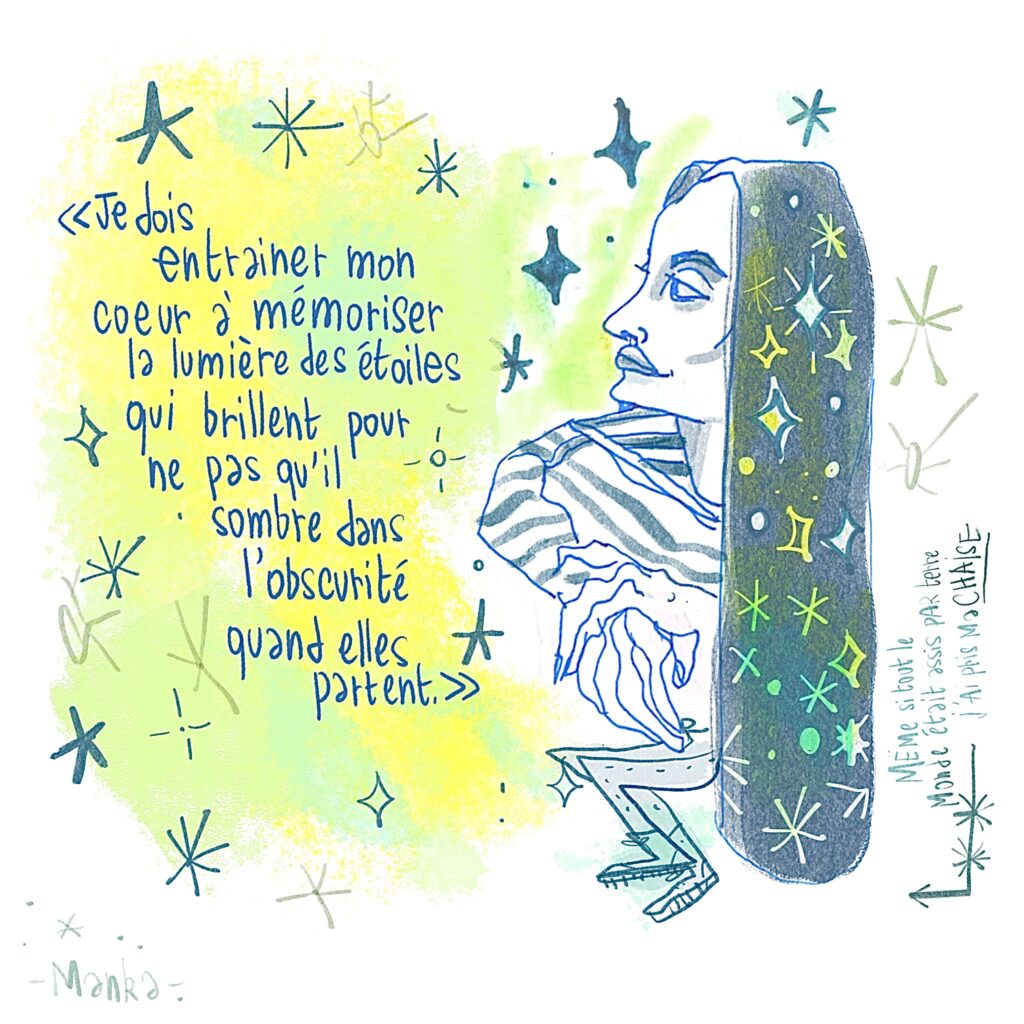 «Je dois
entrainer mon
coeur à mémoriser
la lumière des étoiles
qui brillent pour
ne pas qu'il
sombre dans
l'obscurité
quand elles
partent.»
MÊME si tout le
Monde était assis PAR terre
j'Ai pris MaCHAISE
-Manka-